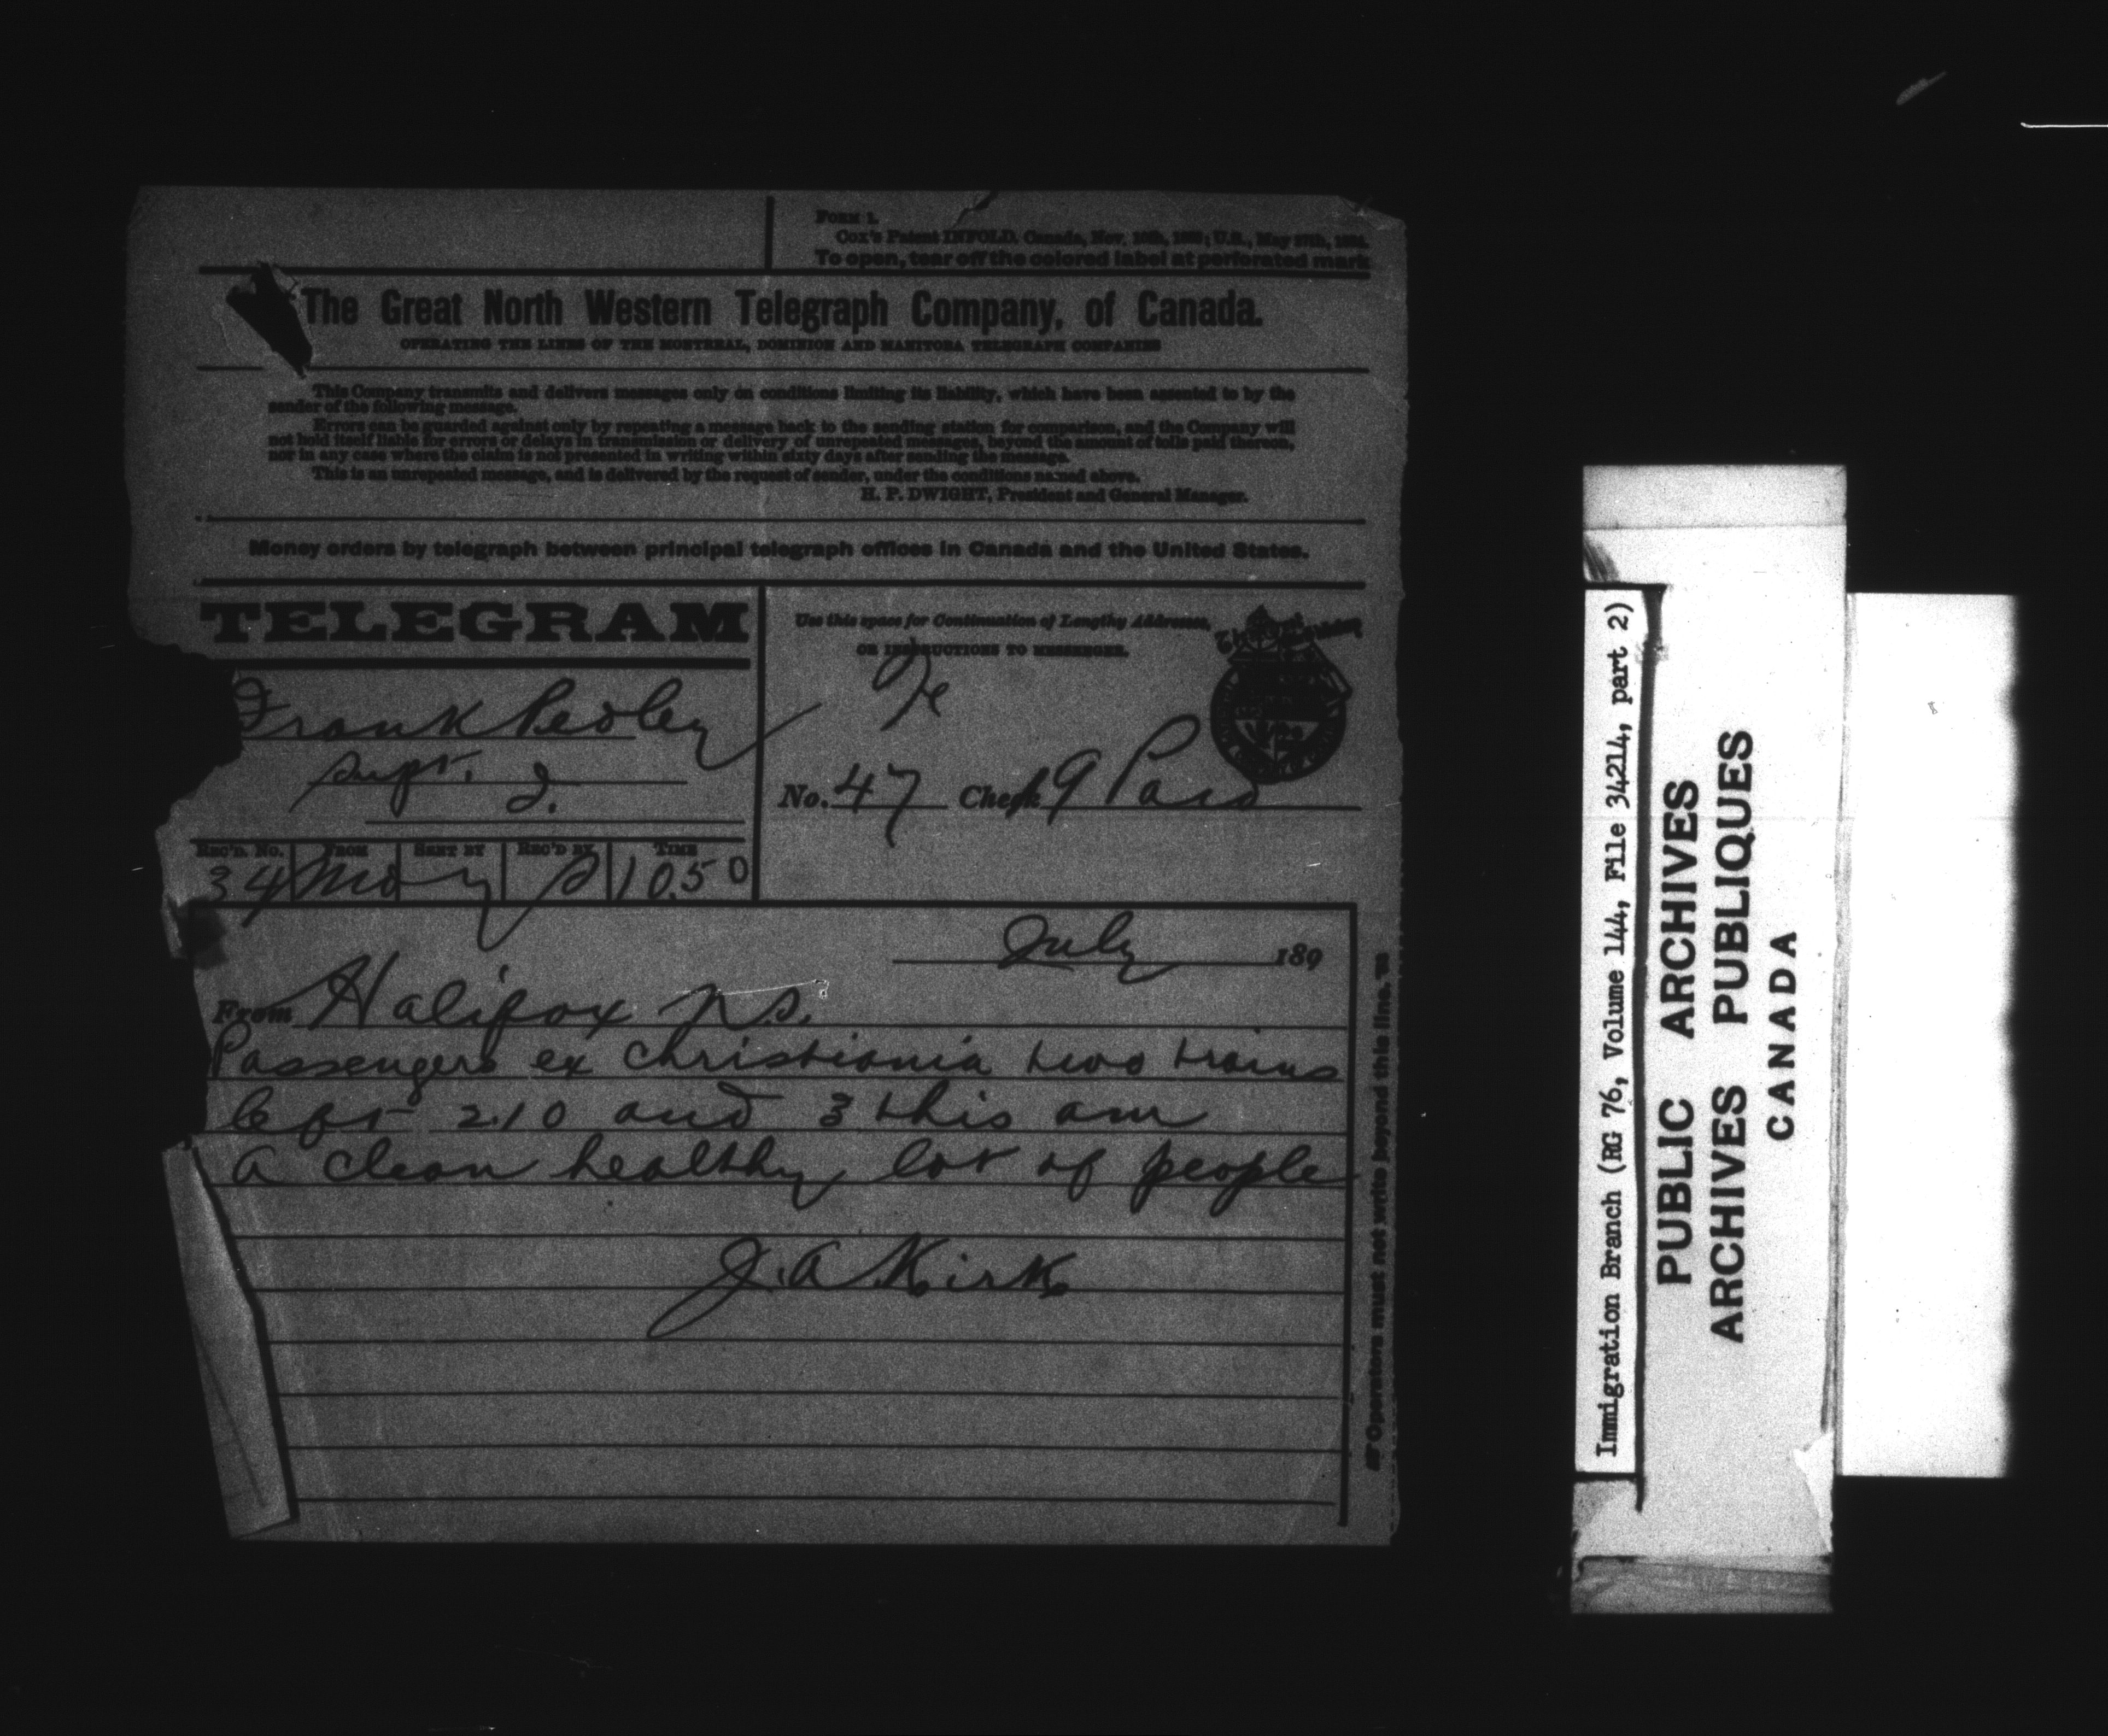 FORM 1.
Cox's Patent INFOLD. Canada, Nov. U.S., May
To open, tear off the colored label at perforated mark
The Great North Western Telegraph Company, of Canada.
OPERATING THE LINES OF THE MONTREAL, DOMINION AND MANITOBA TELEGRAPH COMPANIES
This Company transmits and delivers messages only on conditions limiting its liability, which have been assented to by the
sender of the following message.
Errors can be guarded against only by repeating a message back to the sending station for comparison, and the Company will
not hold itself liable for errors or delays in transmission or delivery of unrepeated messages, beyond the amount of tolls paid thereon,
nor in any case where the claim is not presented in writing within sixty days after sending the message.
This is an unrepeated message, and is delivered by the request of sender, under the conditions named above.
H. P. DWIGHT, President and General Manager.
Money orders by telegraph between principal telegraph offices in Canada and the United States.
TELEGRAM
Use this space for Continuation of Lengthy Addresses,
OR INSTRUCTIONS TO MESSENGER.
Frank Pedley
Supt.
No. 47 Check 9 Paid
REC'D. No. FROM SENT BY REC'D BY TIME
34 10.50
July 189
From Halifax NS.
Passengers ex Christiania two trains
left 2.10 and 3 this am
a clean healthy lot of people
J.A Kirk
Operators must not write beyond this line.
Immigration Branch (RG 76, Volume 144, File 34214, part 2)
PUBLIC ARCHIVES
ARCHIVES PUBLIQUES
CANADA